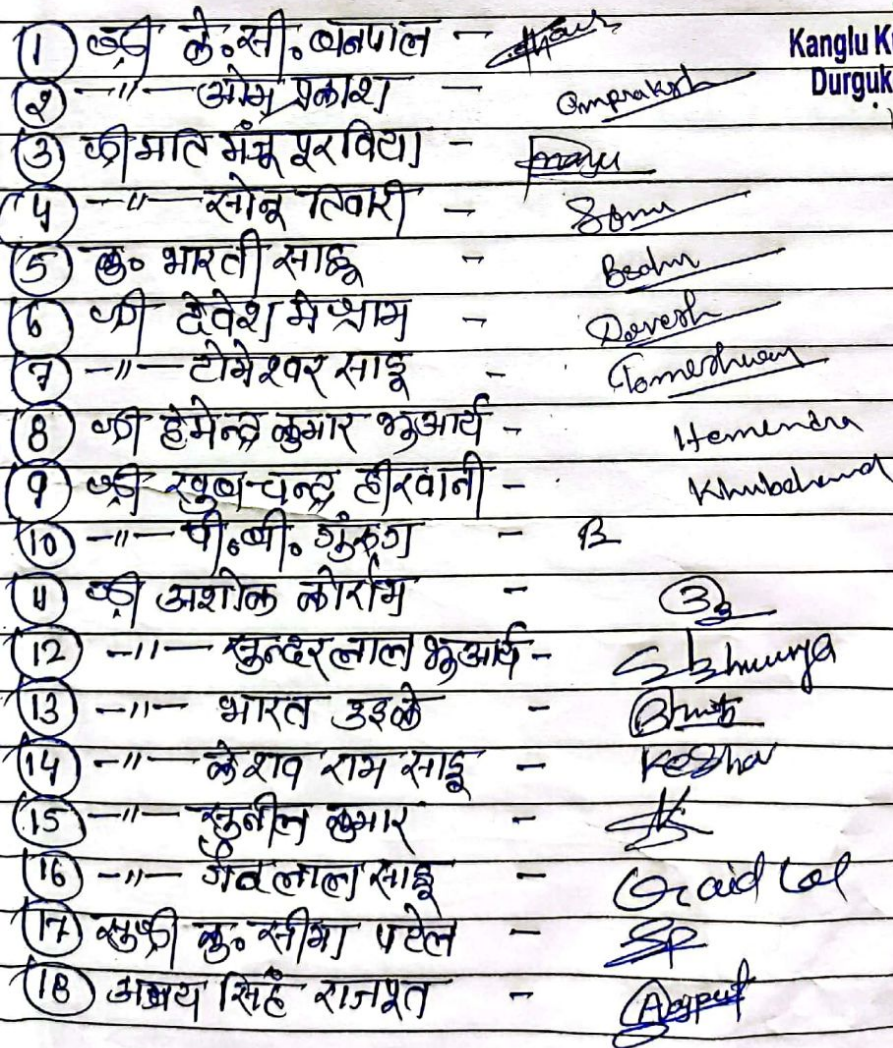 Kanglu K
Durguk
① श्री के॰सी॰ धनपाल -
② -〃- ओम प्रकाश - Omprakash
③ श्रीमति मंजू पूरविया - Manju
④ -〃- सोनू तिवारी - Sonu
⑤ कु॰ भारती साहू -
⑥ श्री देवेश मेश्राम - Devesh
⑦ -〃- टोमेश्वर साहू - Tomeshwar
⑧ श्री हेमेन्द्र कुमार भुआर्य - Hemendra
⑨ श्री खुबचन्द्र हीरवानी - Khubchand
⑩ -〃- पी॰बी॰ गुरूंग - B
⑪ श्री अशोक कोर्राम -
⑫ -〃- सुन्दरलाल भुआर्य - S Bhuurya
⑬ -〃- भारत उइके -
⑭ -〃- केशव राम साहू - Keshav
⑮ -〃- सुनील कुमार -
⑯ -〃- गैंदलाल साहू - Graid Lal
⑰ सुश्री कु॰ सीमा पटेल - SP
⑱ अभय सिंह राजपूत -